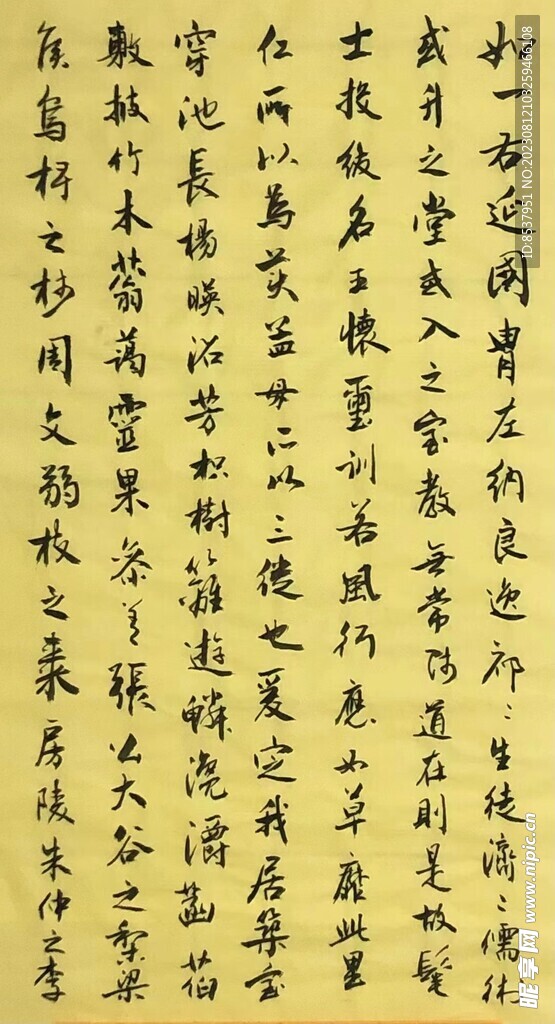 如一右延國胄左納良逸祁〻生徒濟〻儒術
或升之堂或入之室教無常師道在則是故髦
士投紱名王懷璽訓若風行應如草靡此里
仁所以為美孟母所以三徙也爰定我居築室
穿池長楊暎沼芳枳樹籬遊鱗瀺灂菡萏
敷披竹木蓊藹靈果參差張公大谷之梨梁
侯烏椑之柿周文弱枝之棗房陵朱仲之李
ID:8537951 NO:20230812103259466108
昵享网 www.nipic.cn